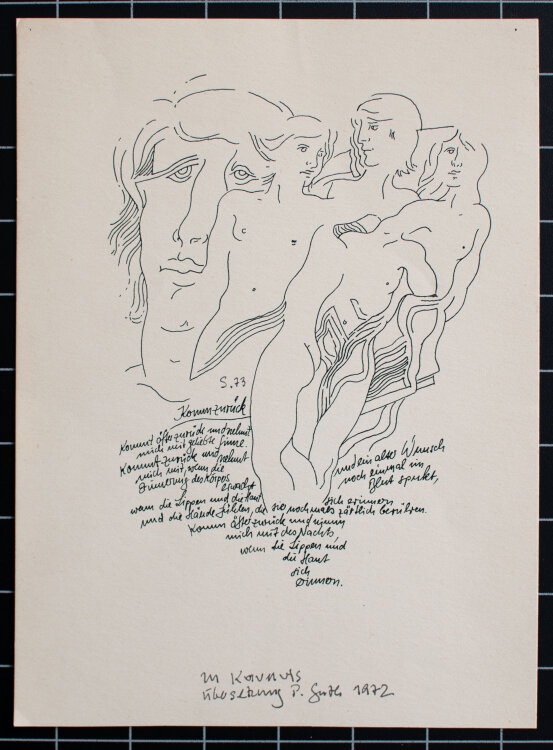 S. 73
Komm zurück
Kommt öfter zurück und nehmt
mich mit geliebte Sinne.
Kommt zurück und nehmt
mich mit, wenn die
Erinnerung des Körpers
erwacht
und ein alter Wunsch
noch einmal im
Blut spukt,
wenn die Lippen und die Haut
sich erinnern
und die Hände fühlen, die sie nochmals zärtlich berühren.
Komm öfter zurück und nimm
mich mit des Nachts
wenn die Lippen und
die Haut
sich
erinnern.
Übersetzung P. 1972